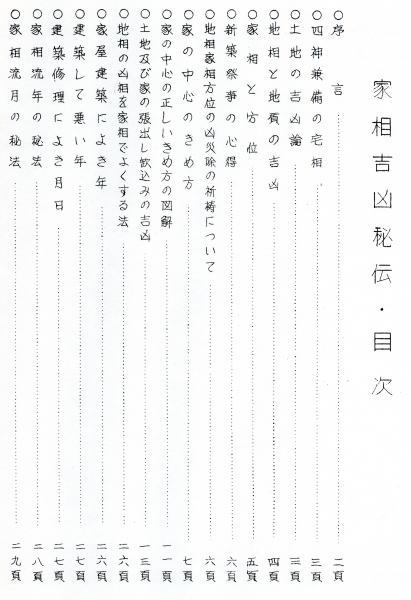 家相吉凶秘伝・目次
○序言……二頁
○四神兼備の宅相……三頁
○土地の吉凶論……三頁
○地相と地質の吉凶……四頁
○家相と方位……五頁
○新築祭事の心得……六頁
○地相家相方位の凶災除の祈祷について……六頁
○家の中心のきめ方……七頁
○家の中心の正しいきめ方の図解……一一頁
○土地及び家の張出し欠込みの吉凶……一三頁
○地相の凶相を家相でよくする法……二六頁
○家屋建築によき年……二六頁
○建築して悪い年……二七頁
○建築修理によき月日……二七頁
○家相流年の秘法……二八頁
○家相流月の秘法……二九頁